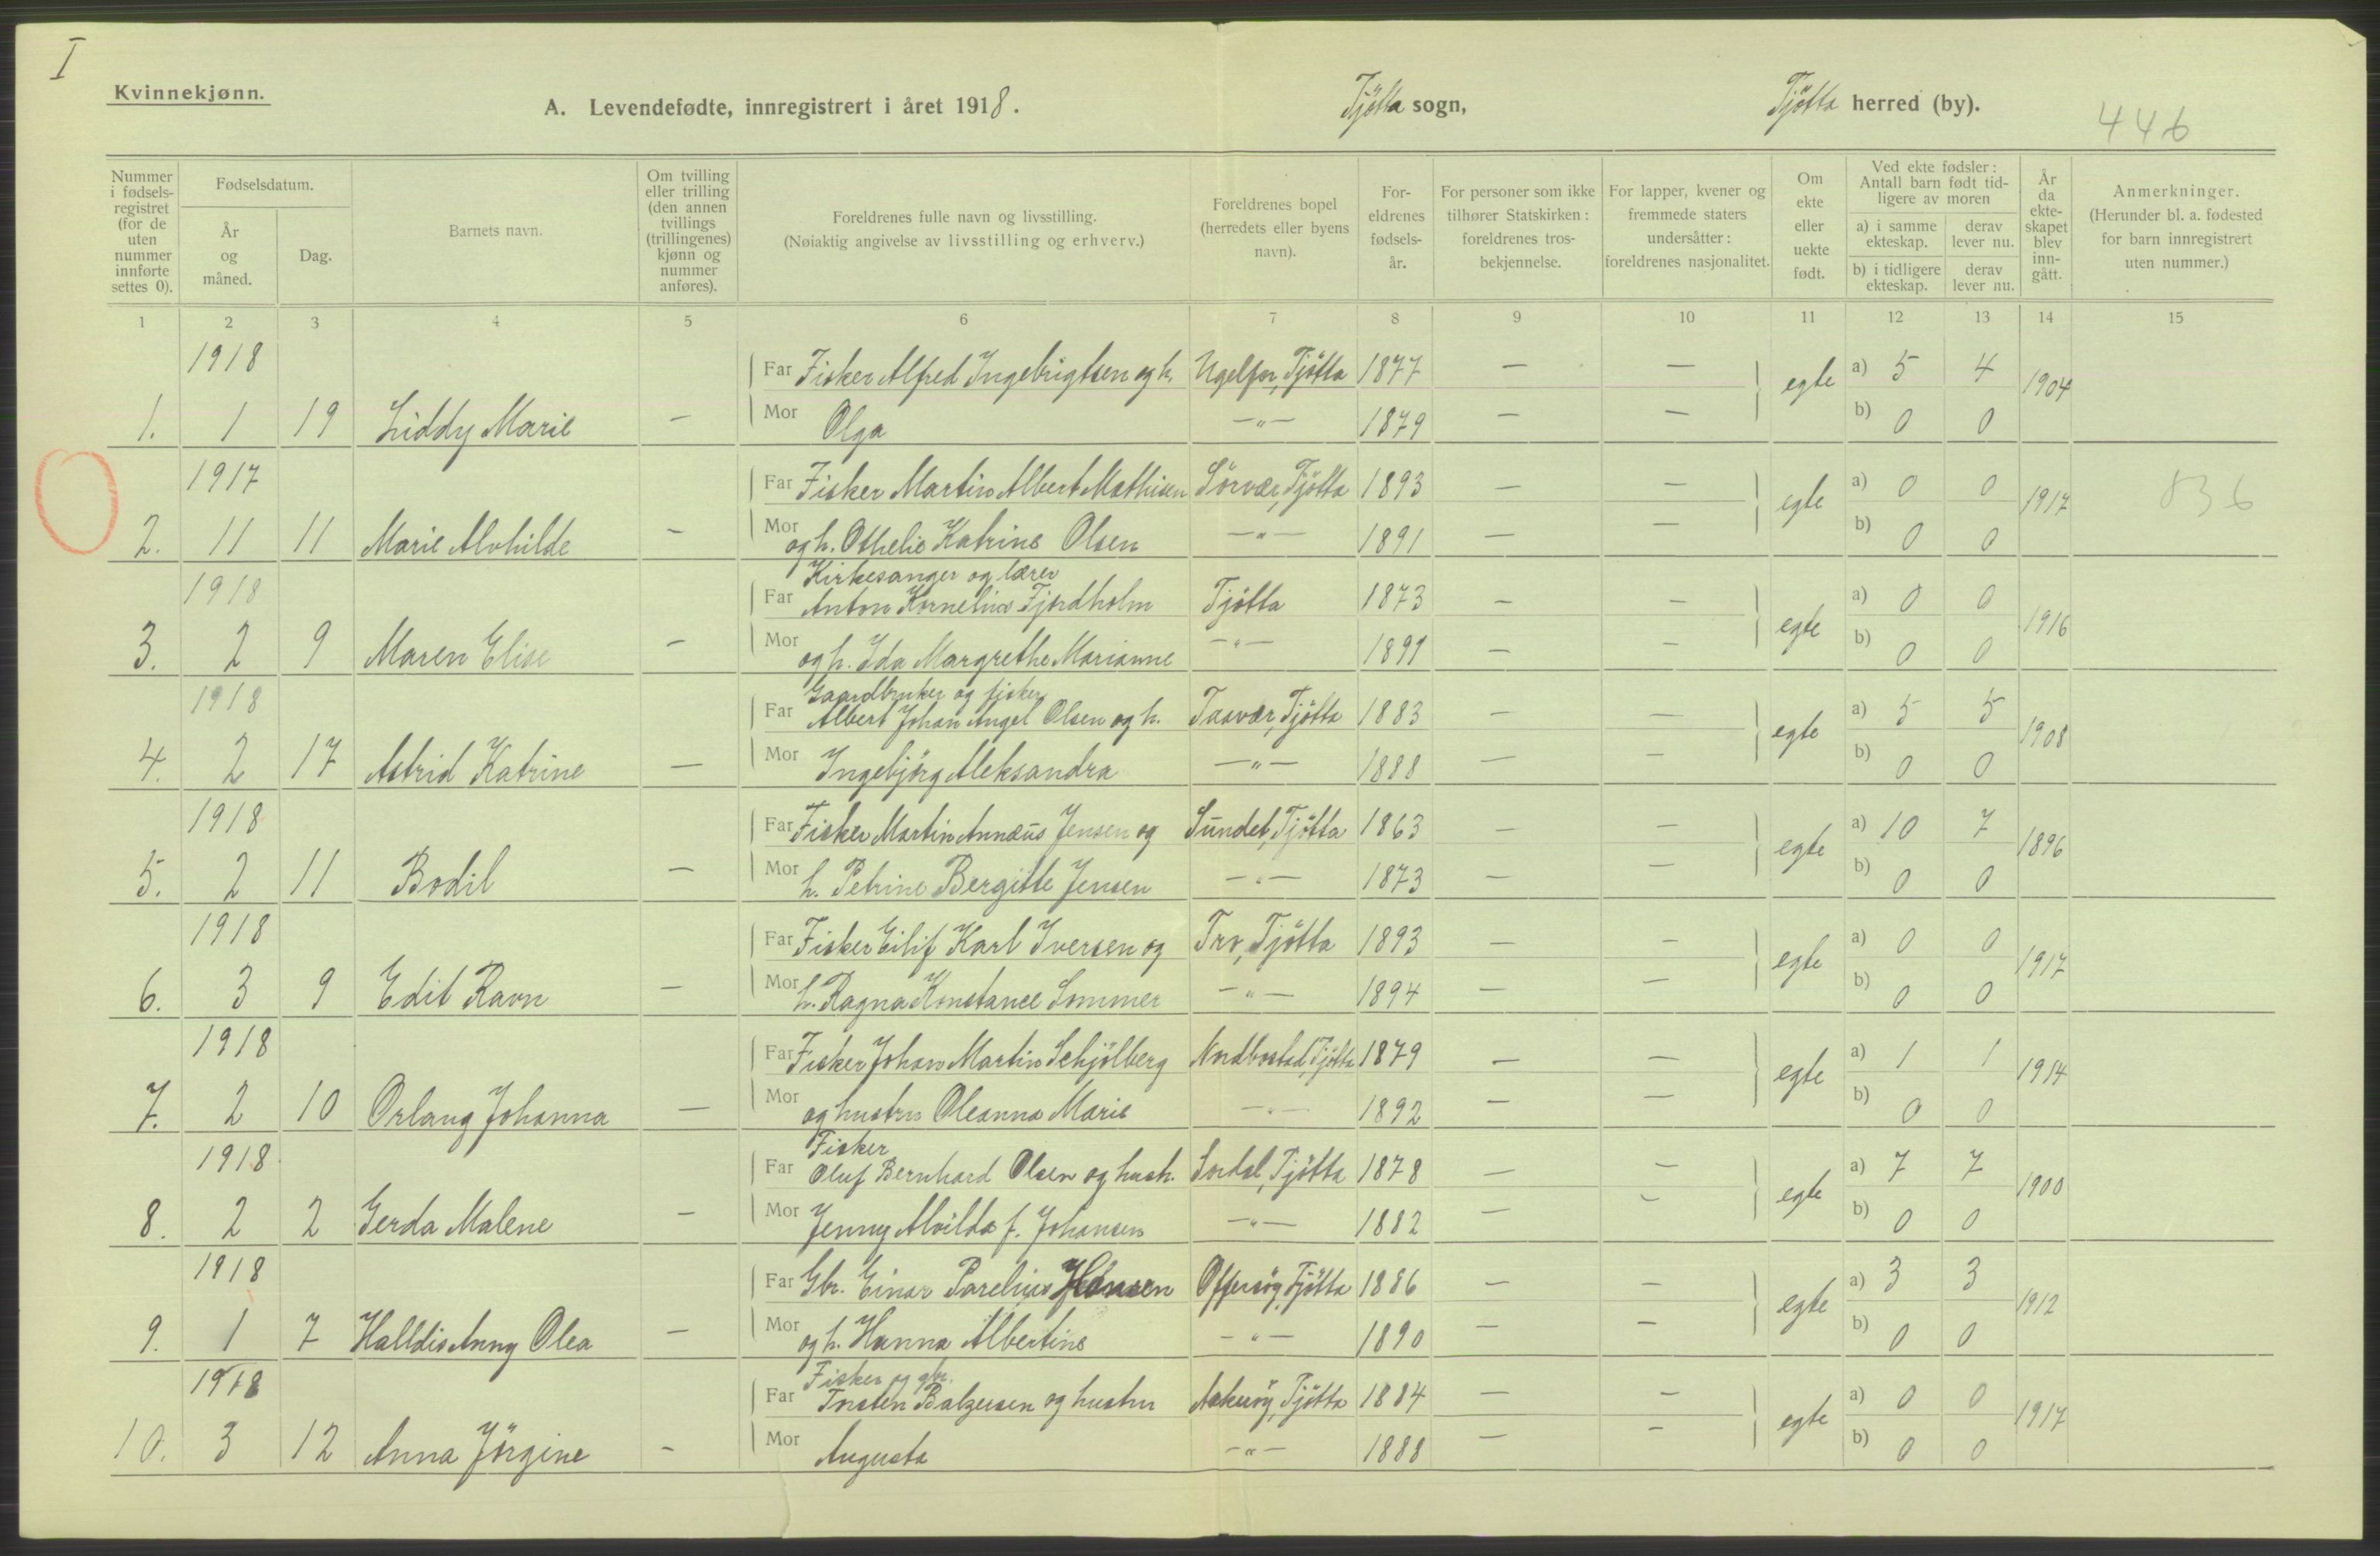 I
Kvinnekjønn.
A. Levendefødte, innregistrert i året 1918. Tjötta sogn, Tjötta herred (by).
446
Nummer i fødsels-registret (for de uten nummer innførte settes 0).
Fødselsdatum.
År og måned.
Dag.
Barnets navn.
Om tvilling eller trilling (den annen tvillings (trillingenes) kjønn og nummer anføres).
Foreldrenes fulle navn og livsstilling.
(Nøiaktig angivelse av livsstilling og erhverv.)
Foreldrenes bopel (herredets eller byens navn).
For-eldrenes fødsels-år.
For personer som ikke tilhører Statskirken: foreldrenes tros-bekjennelse.
For lapper, kvener og fremmede staters undersåtter: foreldrenes nasjonalitet.
Om ekte eller uekte født.
Ved ekte fødsler: Antall barn født tid-ligere av moren
a) i samme ekteskap.
derav lever nu.
b) i tidligere ekteskap.
derav lever nu.
År da ekte-skapet blev inn-gått.
Anmerkninger.
(Herunder bl. a. fødested for barn innregistrert uten nummer.)
1 2 3 4 5 6 7 8 9 10 11 12 13 14 15
1918 Far Fisker Alfred Ingebrigtsen og h. Tjötta 1877 — — egte a) 5 4 1904
1. 1 19 Liddy Marie — Mor Olga —"— 1879 — — b) 0 0
1917 Far Fisker Martin Albert Mathisen Sörvær, Tjötta 1893 — — egte a) 0 0 1917 836
2. 11 11 Marie Alvhilde — Mor og h. Othelie Katrine Olsen —"— 1891 — — b) 0 0
Kirkesanger og lærer
1918 Far Anton Kornelius Fjordholm Tjötta 1873 — — egte a) 0 0 1916
3. 2 9 Maren Elise — Mor og h. Ida Margrethe Marianne —"— 1891 — — b) 0 0
Gaardbruker og fisker
1918 Far Albert Johan Angel Olsen og h. Taavær, Tjötta 1883 — — egte a) 5 5 1908
4. 2 17 Astrid Katrine — Mor Ingebjörg Aleksandra —"— 1888 — — b) 0 0
1918 Far Fisker Martin Annæus Jensen og Sundet, Tjötta 1863 — — egte a) 10 7 1896
5. 2 11 Bodil — Mor h. Petrine Bergitte Jensen —"— 1873 — — b) 0 0
1918 Far Fisker Eilif Karl Iversen og Tro, Tjötta 1893 — — egte a) 0 0 1917
6. 3 9 Edit Ravn — Mor h. Ragna Konstance Sommer —"— 1894 — — b) 0 0
1918 Far Fisker Johan Martin Schjölberg Nordbostad, Tjötta 1879 — — egte a) 1 1 1914
7. 2 10 Orlaug Johanna — Mor og hustru Oleanna Marie —"— 1892 — — b) 0 0
Fisker
1918 Far Oluf Bernhard Olsen og hustr. Tjötta 1878 — — egte a) 7 7 1900
8. 2 2 Gerda Malene — Mor Jenny Alvilda f. Johansen —"— 1882 — — b) 0 0
1918 Far Gbr. Einar Parelius Hansen Offersöy, Tjötta 1886 — — egte a) 3 3 1912
9. 1 7 Halldis Anny Olea — Mor og h. Hanna Albertine —"— 1890 — — b) 0 0
Fisker og gbr.
1918 Far Torsten Balzersen og hustru Tjötta 1884 — — egte a) 0 0 1917
10. 3 12 Anna Jörgine — Mor Augusta —"— 1888 — — b) 0 0